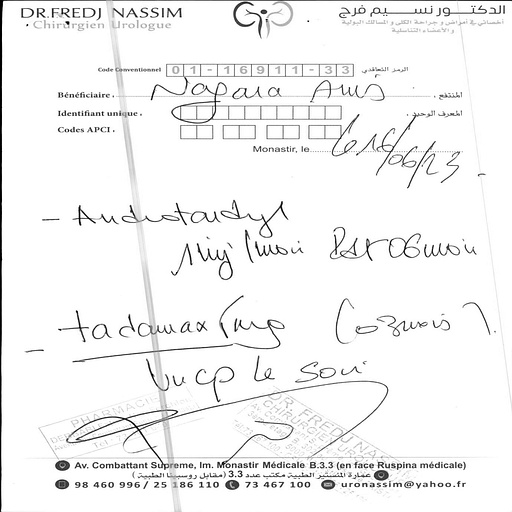 DR.FREDJ NASSIM
Chirurgien Urologue
الدكتور نسيم فرج
أخصائي في أمراض و جراحة الكلى و المسالك البولية
و الأعضاء التناسلية
Code Conventionnel 01-16911-33 الرمز التعاقدي
Bénéficiaire. Nagara Anis المنتفع.
Identifiant unique. المعرف الوحيد.
Codes APCI.
Monastir, le 16/06/23
- Androtardyl
1 inj / mois
- tadamax 5mg (03 mois).
1 cp le soir
PHARMACIE
DR. FREDJ NASSIM
CHIRURGIEN
Av. Combattant Supreme, Im. Monastir Médicale B.3.3 (en face Ruspina médicale)
عمارة المنستير الطبية مكتب عدد 3.3 (مقابل روسبينا الطبية)
98 460 996 / 25 186 110 73 467 100 uronassim@yahoo.fr